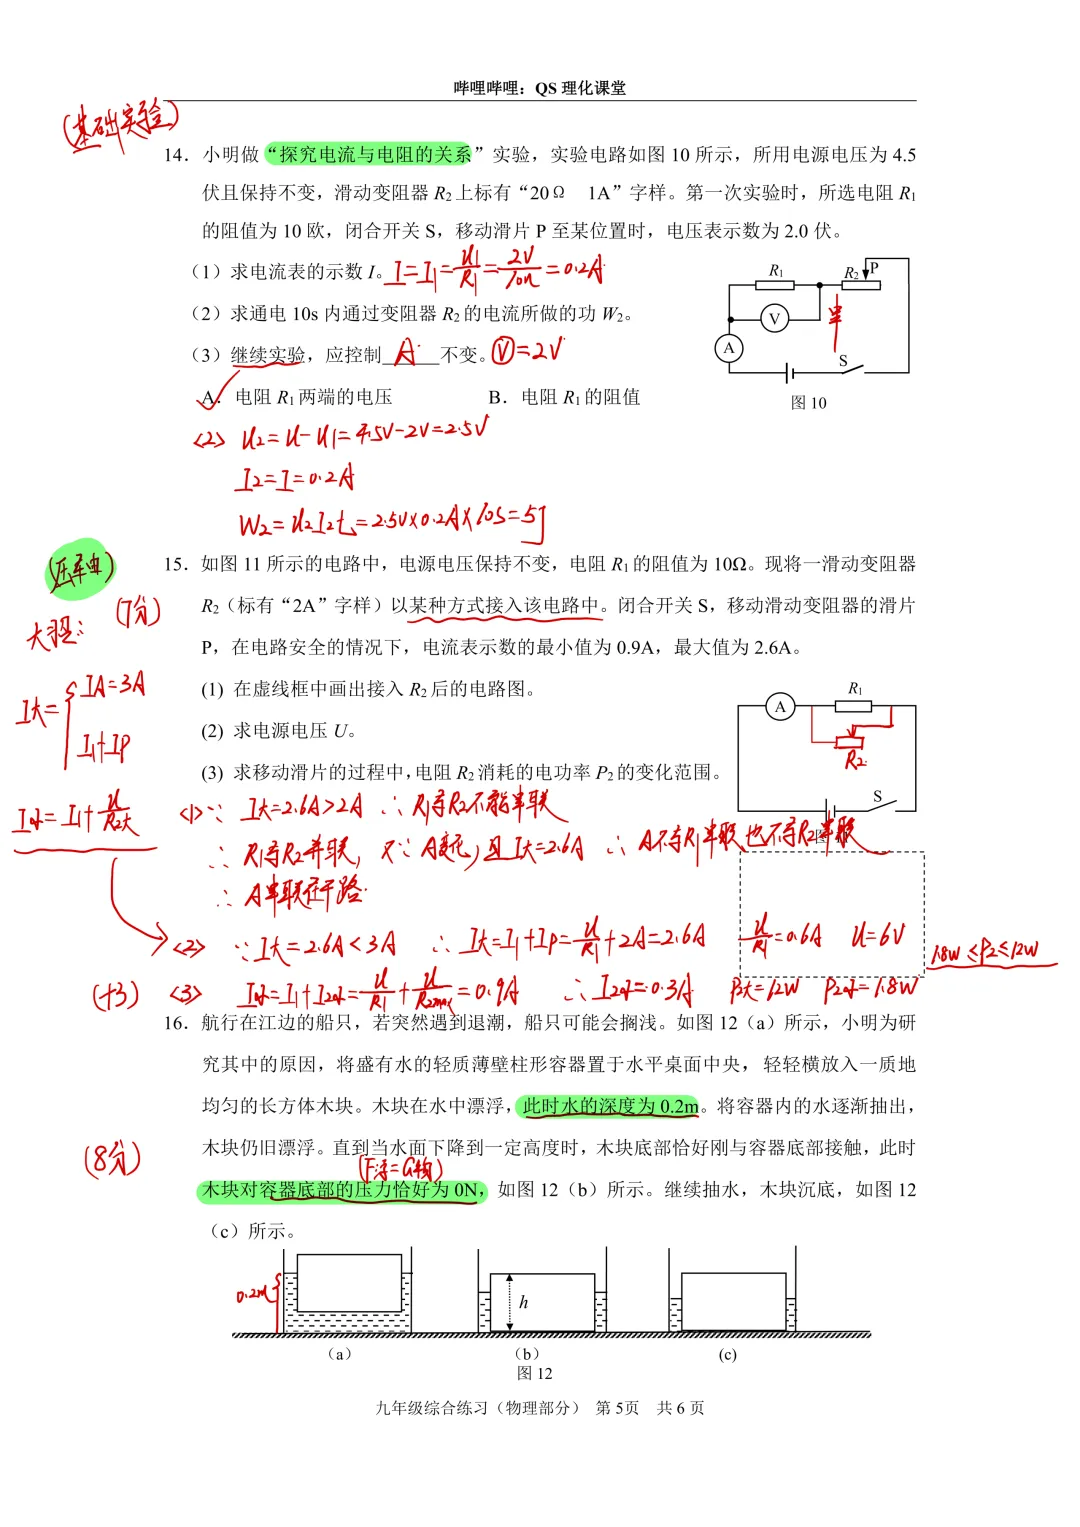 哔哩哔哩：QS 理化课堂
(基础实验)
14．小明做“探究电流与电阻的关系”实验，实验电路如图 10 所示，所用电源电压为 4.5
伏且保持不变，滑动变阻器 R₂上标有“20Ω　1A”字样。第一次实验时，所选电阻 R₁
的阻值为 10 欧，闭合开关 S，移动滑片 P 至某位置时，电压表示数为 2.0 伏。
（1）求电流表的示数 I。 I=I₁=U₁/R₁=2V/10Ω=0.2A
（2）求通电 10s 内通过变阻器 R₂的电流所做的功 W₂。
（3）继续实验，应控制 A 不变。 Ⓥ=2V
A．电阻 R₁两端的电压　　B．电阻 R₁的阻值
R₁ R₂ P
V 串
A S
图 10
<2> U₂=U-U₁=4.5V-2V=2.5V
I₂=I=0.2A
W₂=U₂I₂t=2.5V×0.2A×10s=5J
(压轴)
15．如图 11 所示的电路中，电源电压保持不变，电阻 R₁的阻值为 10Ω。现将一滑动变阻器
(7分)
R₂（标有“2A”字样）以某种方式接入该电路中。闭合开关 S，移动滑动变阻器的滑片
P，在电路安全的情况下，电流表示数的最小值为 0.9A，最大值为 2.6A。
I大= { IA=3A
I₁+IP
I小=I₁+U/R₂大
(1) 在虚线框中画出接入 R₂后的电路图。
(2) 求电源电压 U。
(3) 求移动滑片的过程中，电阻 R₂消耗的电功率 P₂的变化范围。
A R₁
R₂
S
<1> ∵ I大=2.6A>2A ∴ R₁与R₂不能串联
∴ R₁与R₂并联，又∵ A变化，且I大=2.6A ∴ A不与R₁串联，也不与R₂串联
∴ A串联在干路
<2> ∵ I大=2.6A<3A ∴ I大=I₁+IP=U/R₁+2A=2.6A U/R₁=0.6A U=6V
1.8W≤P₂≤12W
(+3) <3> I小=I₁+I₂小=U/R₁+U/R₂max=0.9A ∴ I₂小=0.3A P₂大=12W P₂小=1.8W
16．航行在江边的船只，若突然遇到退潮，船只可能会搁浅。如图 12（a）所示，小明为研
究其中的原因，将盛有水的轻质薄壁柱形容器置于水平桌面中央，轻轻横放入一质地
均匀的长方体木块。木块在水中漂浮，此时水的深度为 0.2m。将容器内的水逐渐抽出，
(8分)
木块仍旧漂浮。直到当水面下降到一定高度时，木块底部恰好刚与容器底部接触，此时
(F浮=G物)
木块对容器底部的压力恰好为 0N，如图 12（b）所示。继续抽水，木块沉底，如图 12
（c）所示。
0.2m h
（a） （b） (c)
图 12
九年级综合练习（物理部分） 第 5页　共 6 页